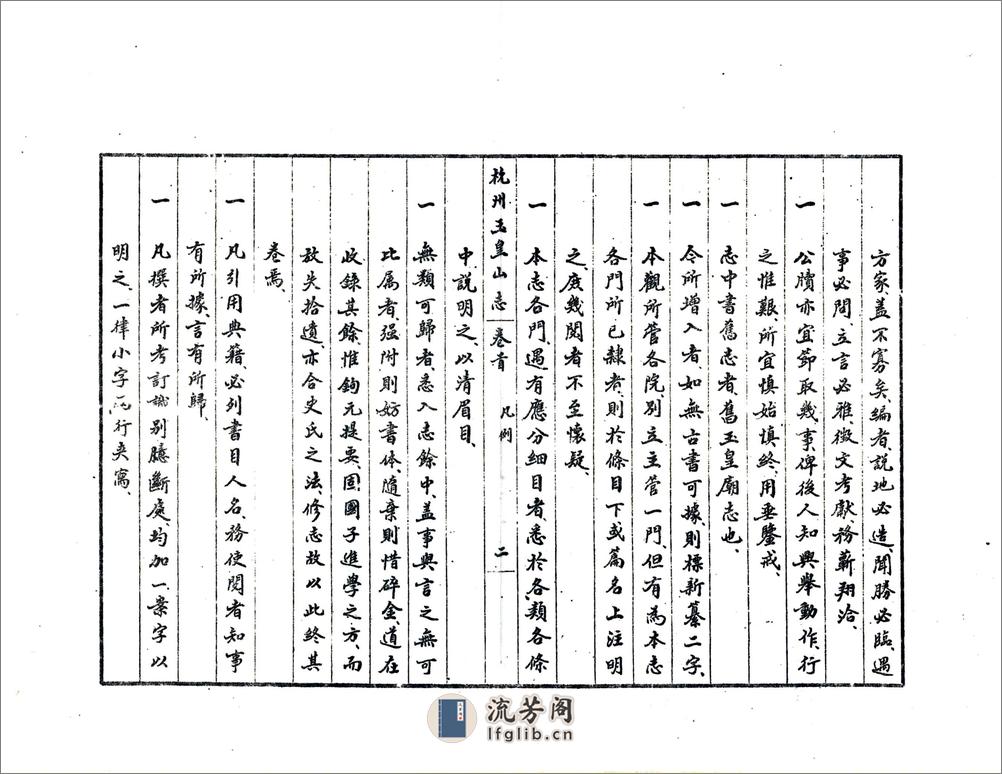 方家盖不寡矣、編者、說地必造、聞勝必臨、遇
事必問、立言必雅、徵文考獻、務蘄翔洽、
一 公牘亦宜節取幾事、俾後人知興舉動作、行
之惟艱、所宜慎始慎終、用垂鑒戒、
一 志中書舊志者、舊玉皇廟志也、
一 今所增入者、如無古書可據、則標新纂二字、
一 本觀所管各院、別立主管一門、但有為本志
各門所已隸者、則於條目下或篇名上注明
之、庶幾閱者不至懷疑、
一 本志各門、遇有應分細目者、悉於各類各條
杭州玉皇山志 卷首 凡例 二
中、說明之、以清眉目、
一 無類可歸者、悉入志餘中、盖事與言之無可
比属者、强附則妨書体、隨棄則惜碎金、道在
收錄其餘、惟鉤元提要、固國子進學之方、而
放失拾遺、亦合史氏之法、修志故以此終其
卷焉、
一 凡引用典籍、必列書目人名、務使閱者知事
有所據、言有所歸、
一 凡撰者所考訂識別臆斷處、均加一案字以
明之、一律小字行夾寫、
流芳阁
lfglib.cn